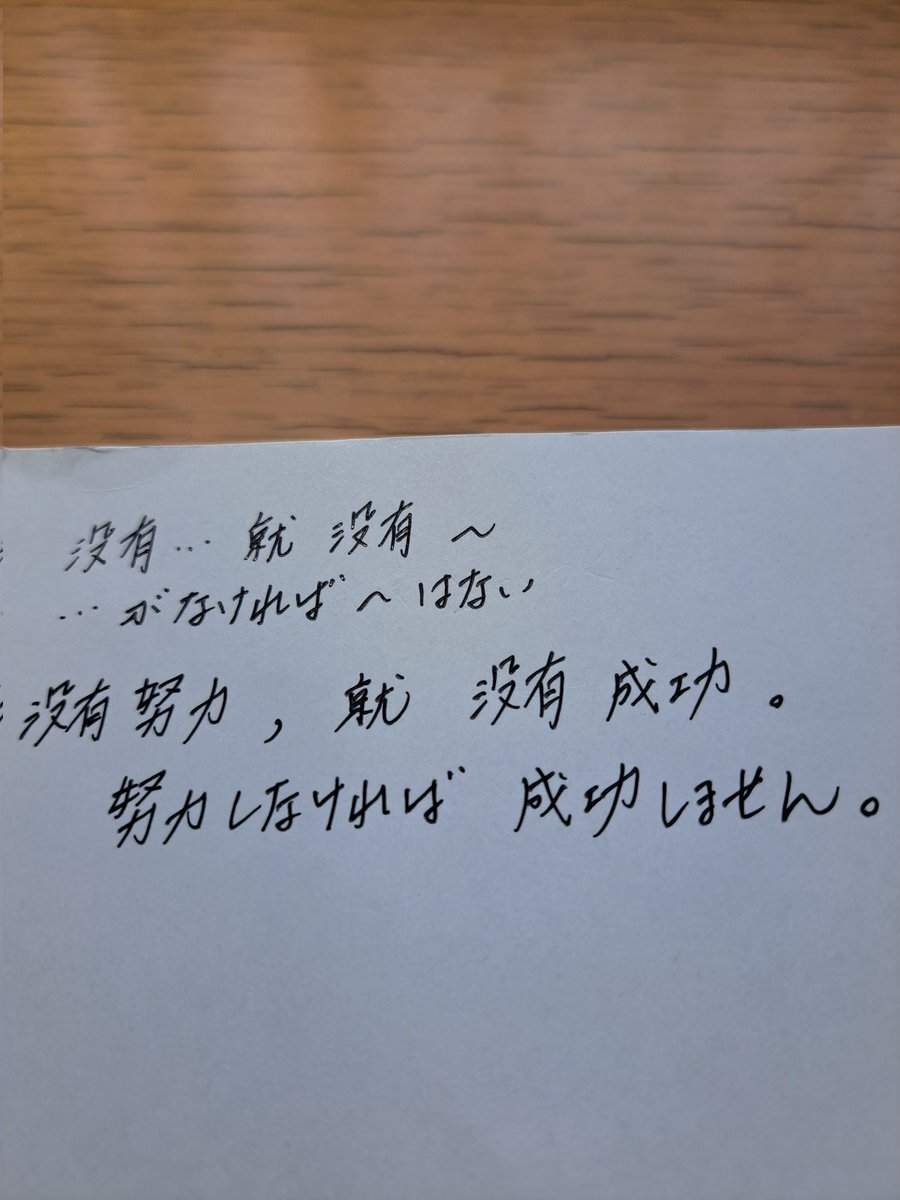 没有… 就 没有 ～
…がなければ ～ はない
没有努力, 就 没有 成功。
努力しなければ 成功しません。